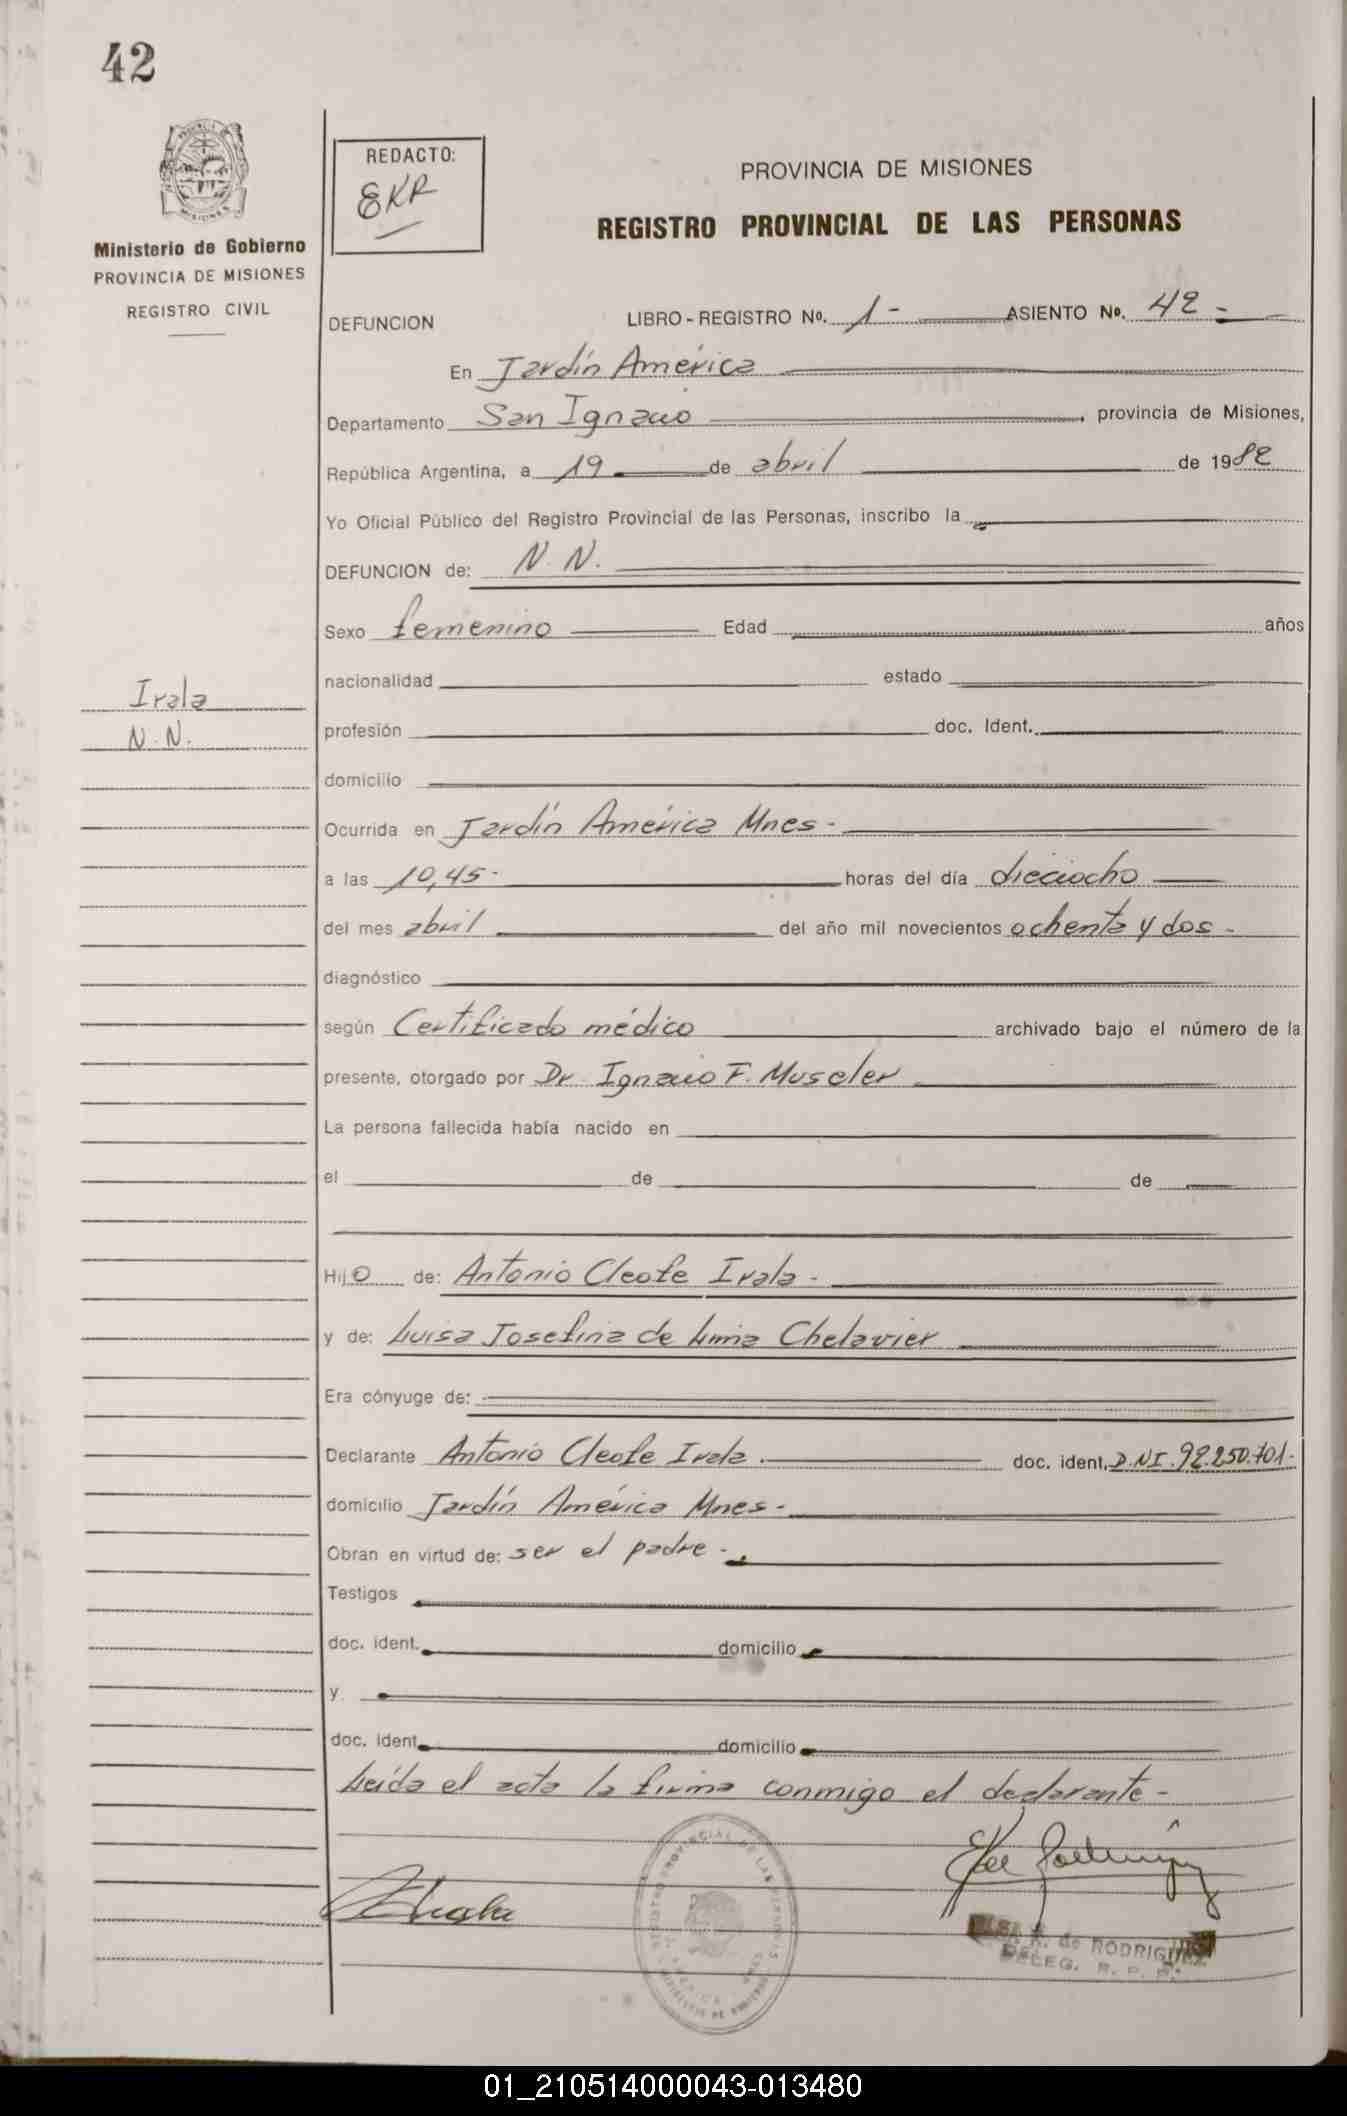 42
Ministerio de Gobierno
PROVINCIA DE MISIONES
REGISTRO CIVIL
REDACTO:
EKR
PROVINCIA DE MISIONES
REGISTRO PROVINCIAL DE LAS PERSONAS
DEFUNCION LIBRO-REGISTRO Nº. 1- ASIENTO Nº. 42-
En Jardín América
Departamento San Ignacio, provincia de Misiones,
República Argentina, a 19 de abril de 1982
Yo Oficial Público del Registro Provincial de las Personas, inscribo la
DEFUNCION de: N. N.
Sexo femenino Edad años
nacionalidad estado
Irala
N. N.
profesión doc. Ident.
domicilio
Ocurrida en Jardín América Mnes-
a las 10,45- horas del día dieciocho
del mes abril del año mil novecientos ochenta y dos-
diagnóstico
según Certificado médico archivado bajo el número de la
presente, otorgado por Dr. Ignacio F. Museler
La persona fallecida había nacido en
el de de
Hijo de: Antonio Cleofe Irala-
y de: Luisa Josefina de Lima Chelavier
Era cónyuge de:
Declarante Antonio Cleofe Irala. doc. ident. D.N.I. 92.250.701-
domicilio Jardín América Mnes-
Obran en virtud de: ser el padre-
Testigos
doc. ident. domicilio
y
doc. ident. domicilio
Leída el acta la firma conmigo el declarante-
REGISTRO PROVINCIAL DE LAS PERSONAS
ELSA K. de RODRIGUEZ
DELEG. R. P. P.
01_210514000043-013480